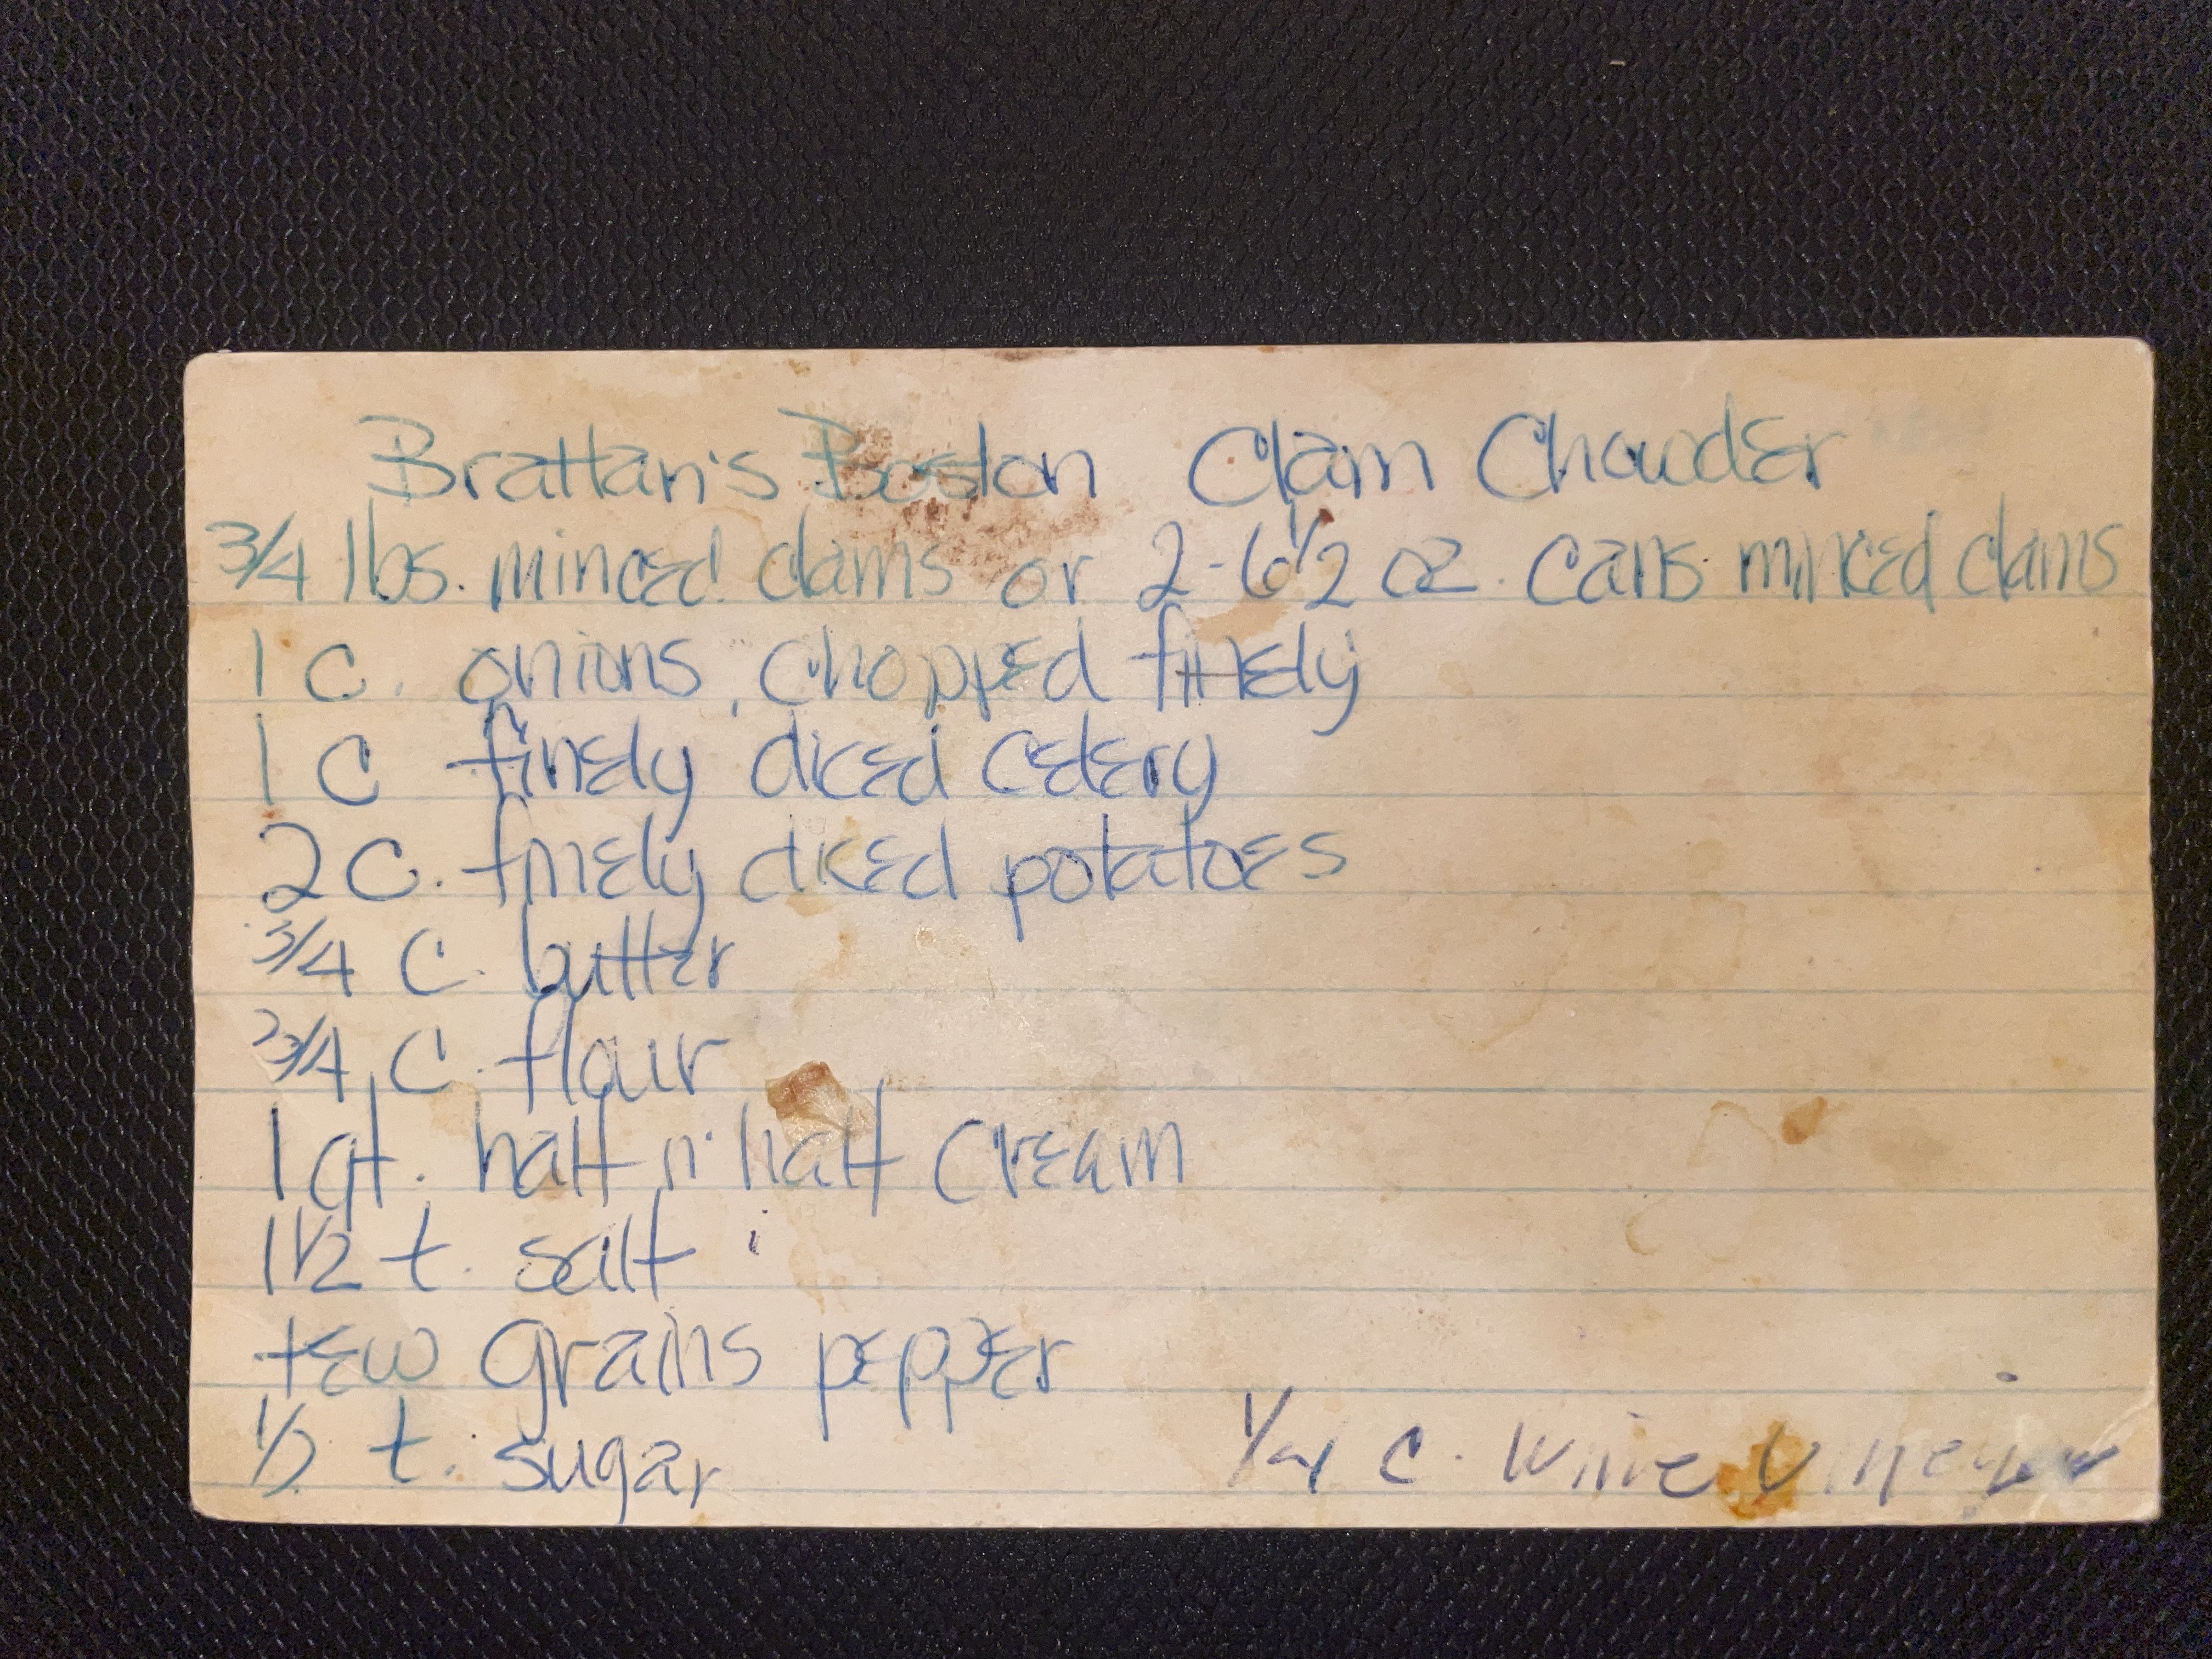 Brattan's Boston Clam Chowder
3/4 lbs. minced clams or 2-6 1/2 oz. cans minced clams
1 c. onions, chopped finely
1 c finely diced celery
2 c. finely diced potatoes
3/4 c. butter
3/4 c. flour
1 qt. half n' half cream
1 1/2 t. salt
few grains pepper
1/2 t. sugar
1/4 c. Wine Vinegar